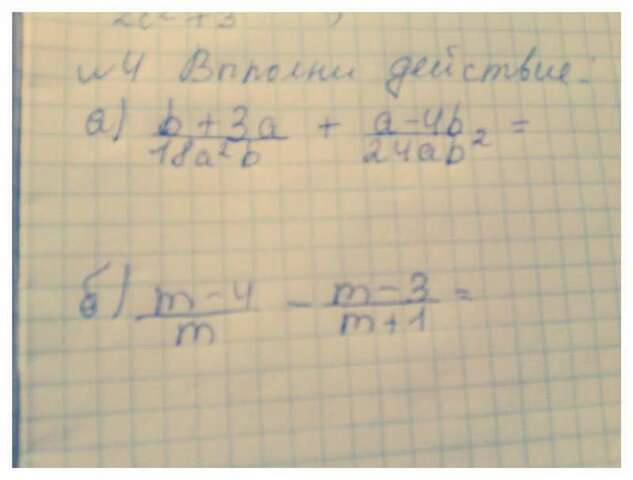 №4 Выполни действие:
а) (b + 3a)/(18a²b) + (a - 4b)/(24ab²) =
б) (m - 4)/m - (m - 3)/(m + 1) =